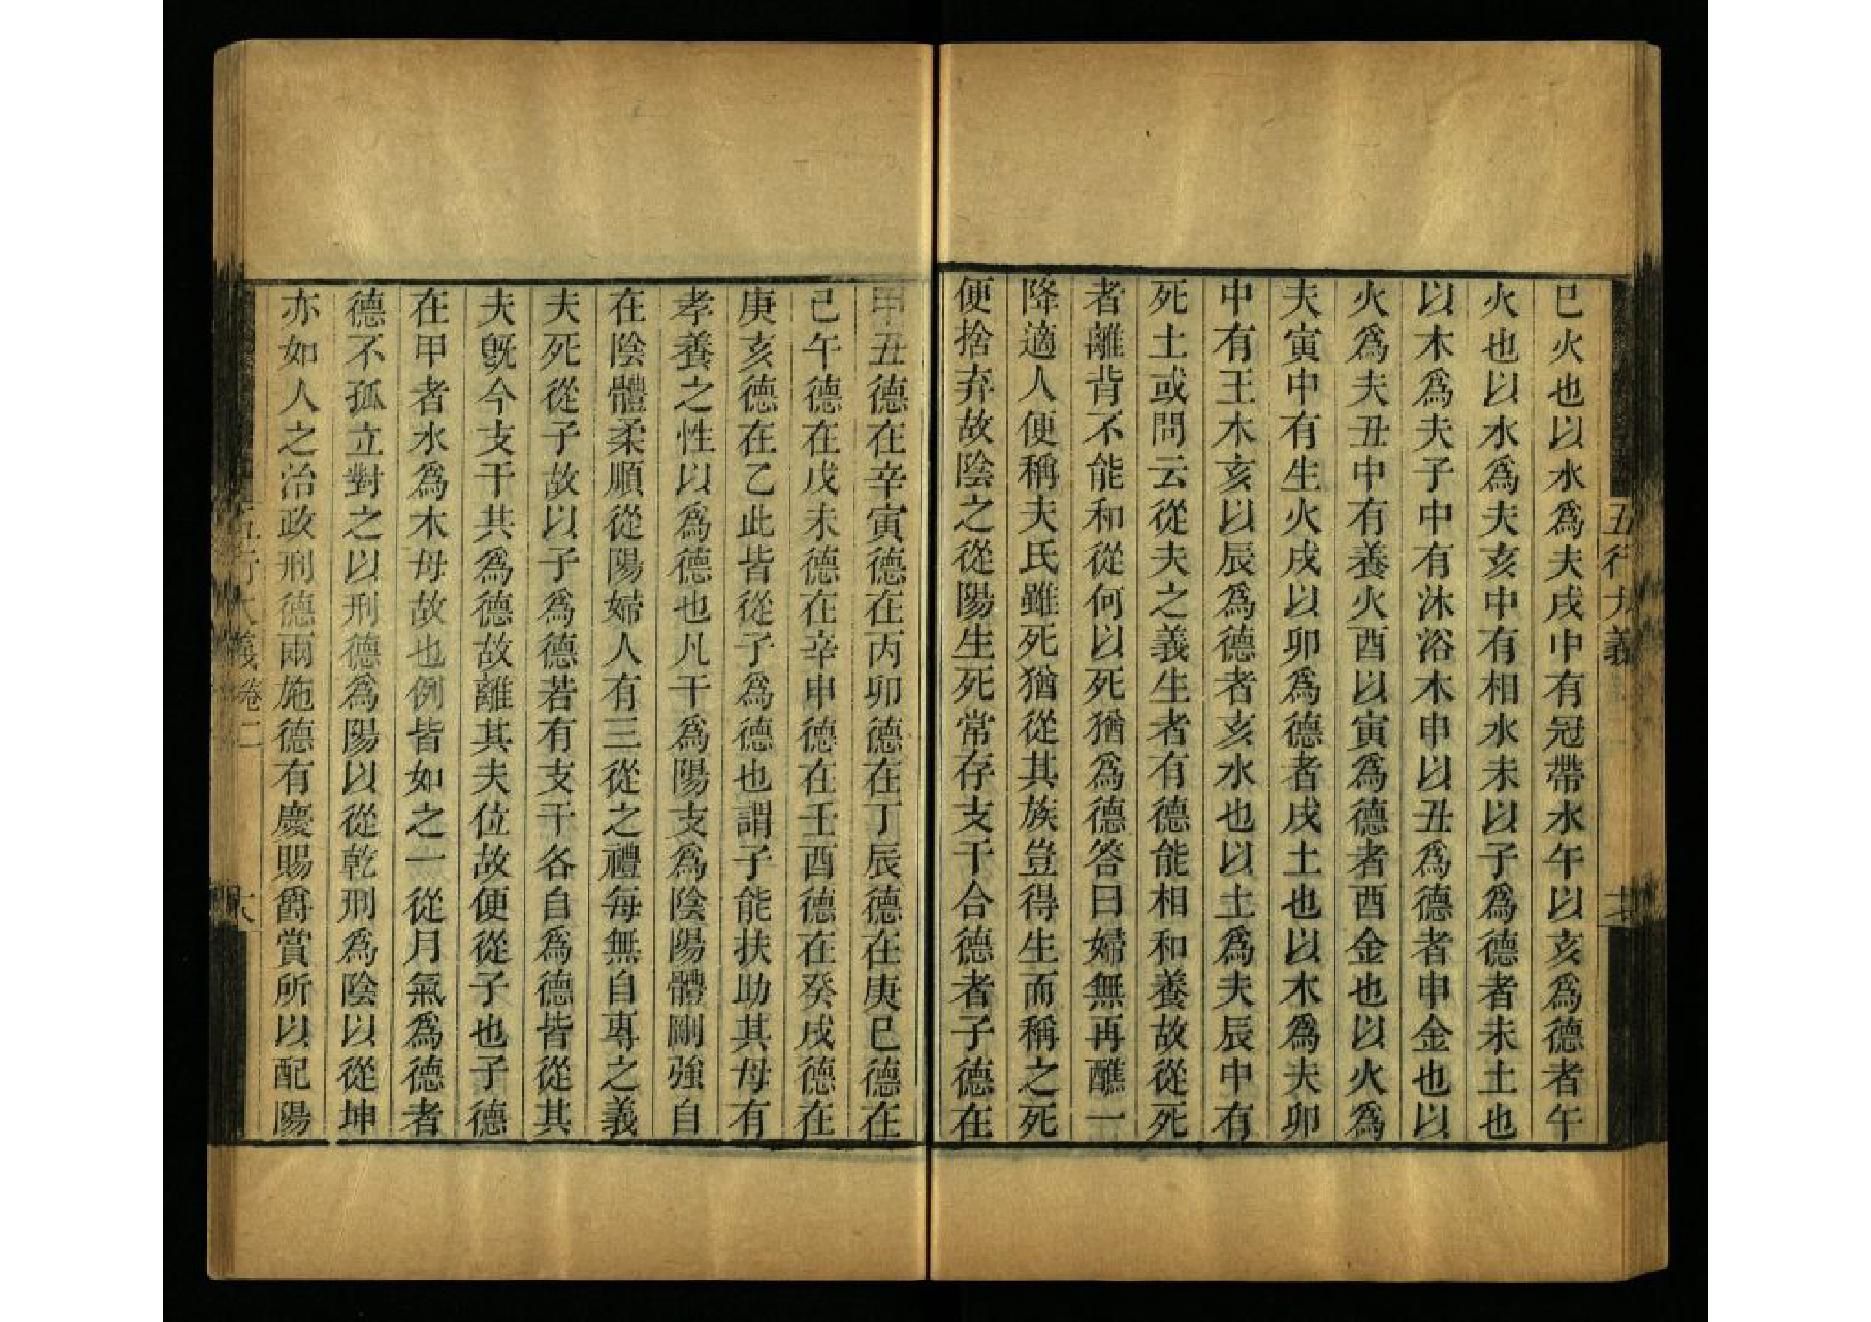 巳火也以水爲夫戌中有冠帶水午以亥爲德者午
火也以水爲夫亥中有相水未以子爲德者未土也
以木爲夫子中有沐浴木申以丑爲德者申金也以
火爲夫丑中有養火酉以寅爲德者酉金也以火爲
夫寅中有生火戌以卯爲德者戌土也以木爲夫卯
中有王木亥以辰爲德者亥水也以土爲夫辰中有
死土或問云從夫之義生者有德能相和養故從死
者離背不能和從何以死猶爲德答曰婦無再醮一
降適人便稱夫氏雖死猶從其族豈得生而稱之死
便捨弃故陰之從陽生死常存支干合德者子德在
甲丑德在辛寅德在丙卯德在丁辰德在庚巳德在
己午德在戊未德在辛申德在壬酉德在癸戌德在
庚亥德在乙此皆從子爲德也謂子能扶助其母有
孝養之性以爲德也凡干爲陽支爲陰陽體剛強自
在陰體柔順從陽婦人有三從之禮每無自專之義
夫死從子故以子爲德若有支干各自爲德皆從其
夫旣今支干共爲德故離其夫位故便從子也子德
在甲者水爲木母故也例皆如之一從月氣爲德者
德不孤立對之以刑德爲陽以從乾刑爲陰以從坤
亦如人之治政刑德兩施德有慶賜爵賞所以配陽
五行大義卷二